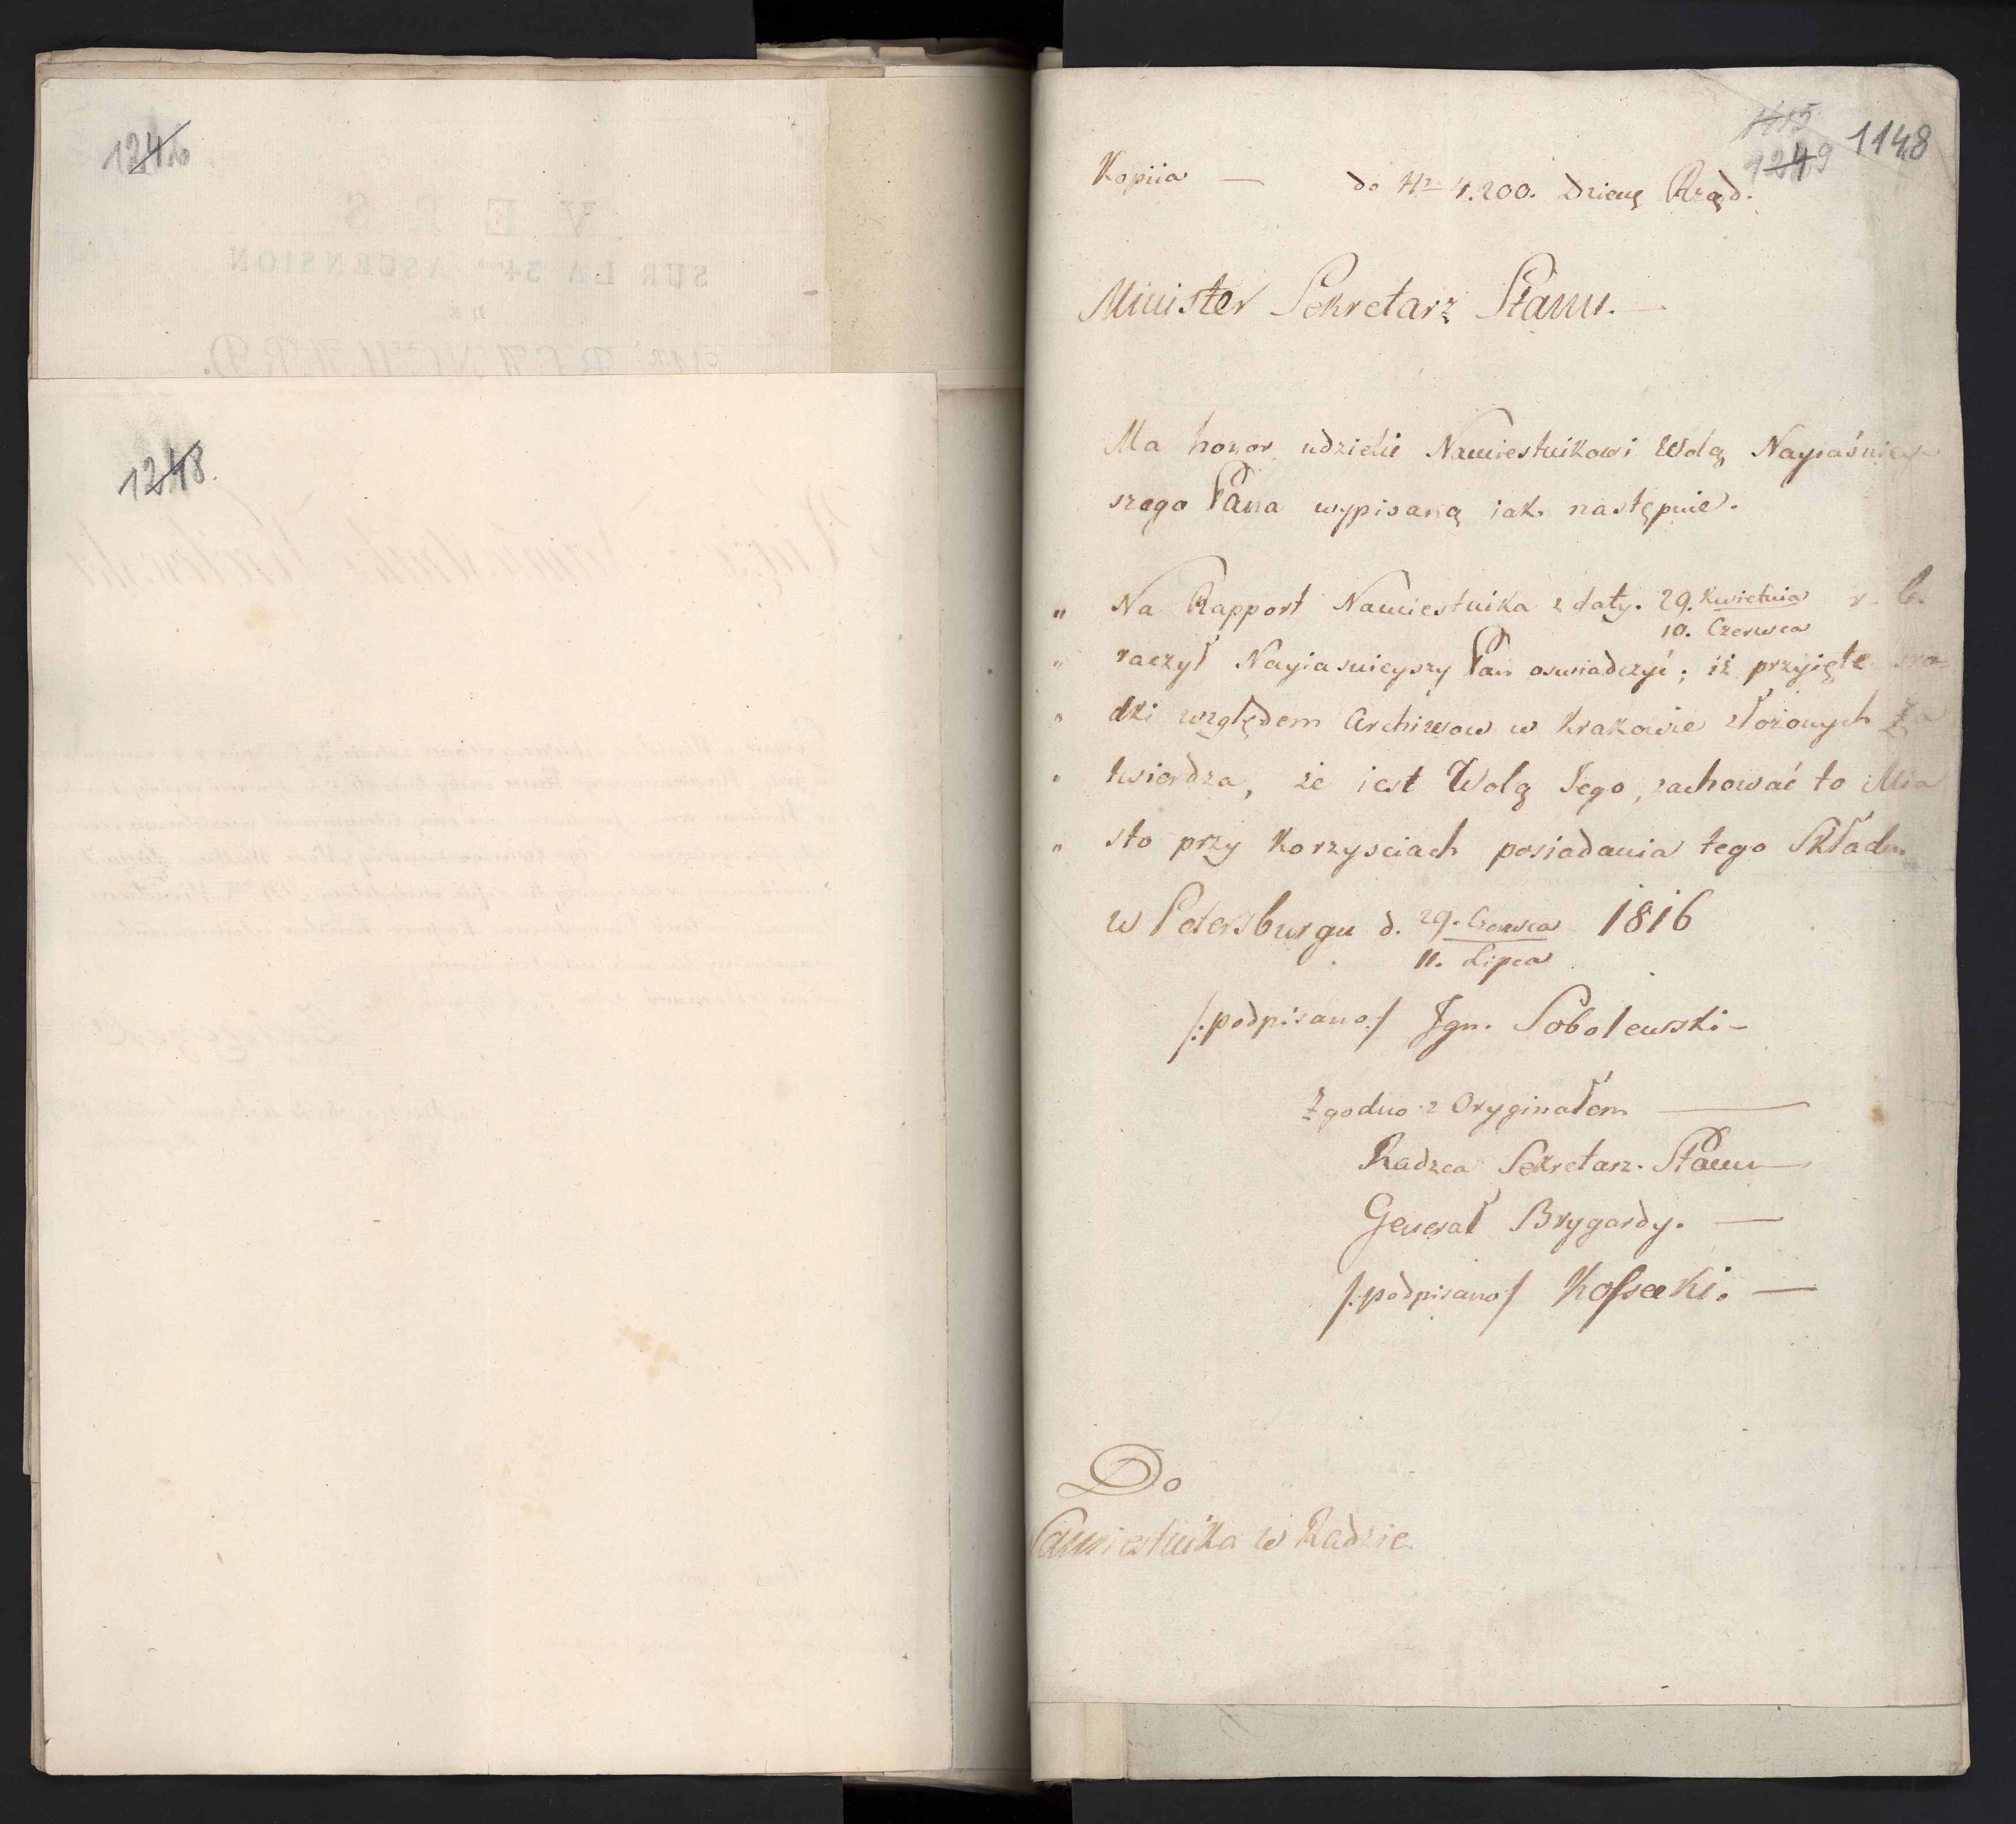 1246
1248.
1115
1249
1148
Kopiia — do Nr 4.200. Dzieñ Rząd.
Minister Sekretarz Stanu. —
Ma honor udzielić Namiestnikowi Wolą Nayiaśniey-
szego Pana wypisaną iak następuie.
„ Na Rapport Namiestnika z daty. 29. Kwietnia r. b.
10. Czerwca
„ raczył Nayiasnieyszy Pan oswiadczyć; iż przyięte śro-
„ dki względem Archiwow w Krakowie złożonych Za
„ twierdza, że iest Wolą Jego, zachować to Mia
„ sto przy Korzysciach posiadania tego Składu.
w Petersburgu d. 29. Czerwca 1816
11. Lipca
/:podpisano:/ Jgn. Sobolewski –
Zgodno z Oryginałem —
Radzca Sekretarz. Stanu —
Generał Brygardy. —
/:podpisano/ Kossecki. —
Do
Namiestnika w Radzie.